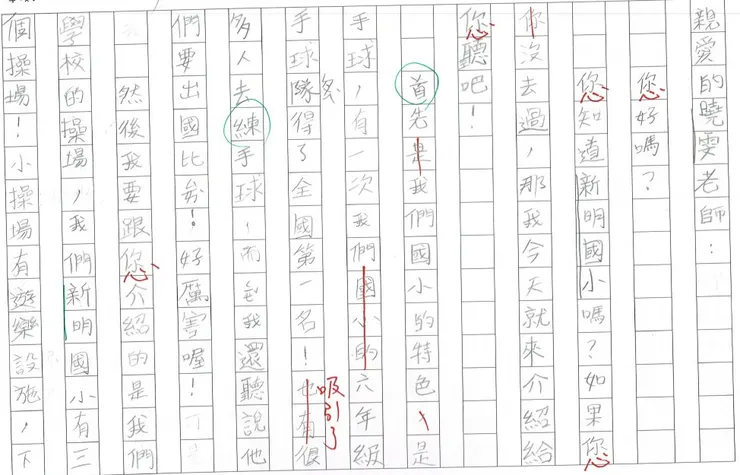 親愛的曉雯老師：
您好嗎？
您知道新明國小嗎？如果您
你沒去過，那我今天就來介紹給
您聽吧！
首先是我們國小的特色、是
手球，有一次我們國小的六年級
手球隊得了全國第一名！也有很
吸引了
多人去練手球，而且我還聽說他
們要出國比賽！好厲害喔！
然後我要跟您介紹的是我們
學校的操場，我們新明國小有三
個操場！小操場有遊樂設施，下